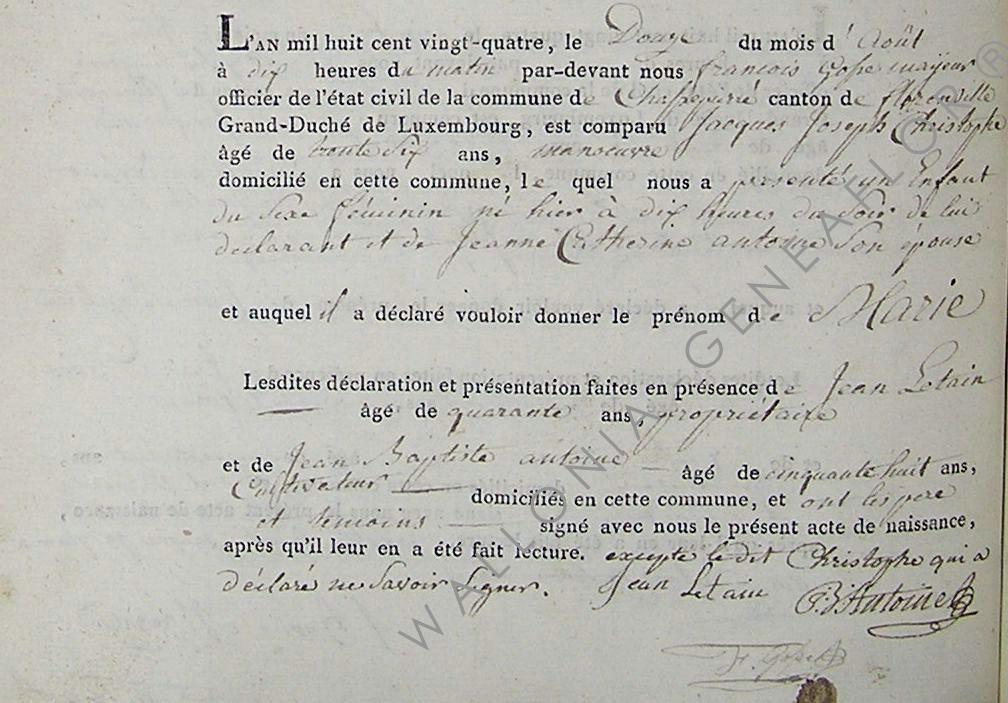 L'AN mil huit cent vingt-quatre, le Douze du mois d' Août
à dix heures du matin par-devant nous francois Gofse mayeur
officier de l'état civil de la commune de Chassepierre canton de florenville
Grand-Duché de Luxembourg, est comparu Jacques Joseph Christophe
âgé de trente Six ans, manoeuvre
domicilié en cette commune, le quel nous a presenté un Enfant
du Sexe féminin né hier à dix heures du Soir de lui
declarant et de Jeanne Catherine antoine Son épouse
et auquel il a déclaré vouloir donner le prénom de Marie
Lesdites déclaration et présentation faites en présence de Jean Letain
âgé de quarante ans, propriétaire
et de Jean Baptiste antoine âgé de cinquante huit ans,
Cultivateur domiciliés en cette commune, et ont les pere
et temoins signé avec nous le présent acte de naissance,
après qu'il leur en a été fait lecture. excepte le dit Christophe qui a
déclaré ne Savoir Signer. Jean Letain JB Antoine
WALLONIA GENEAFLOR ®